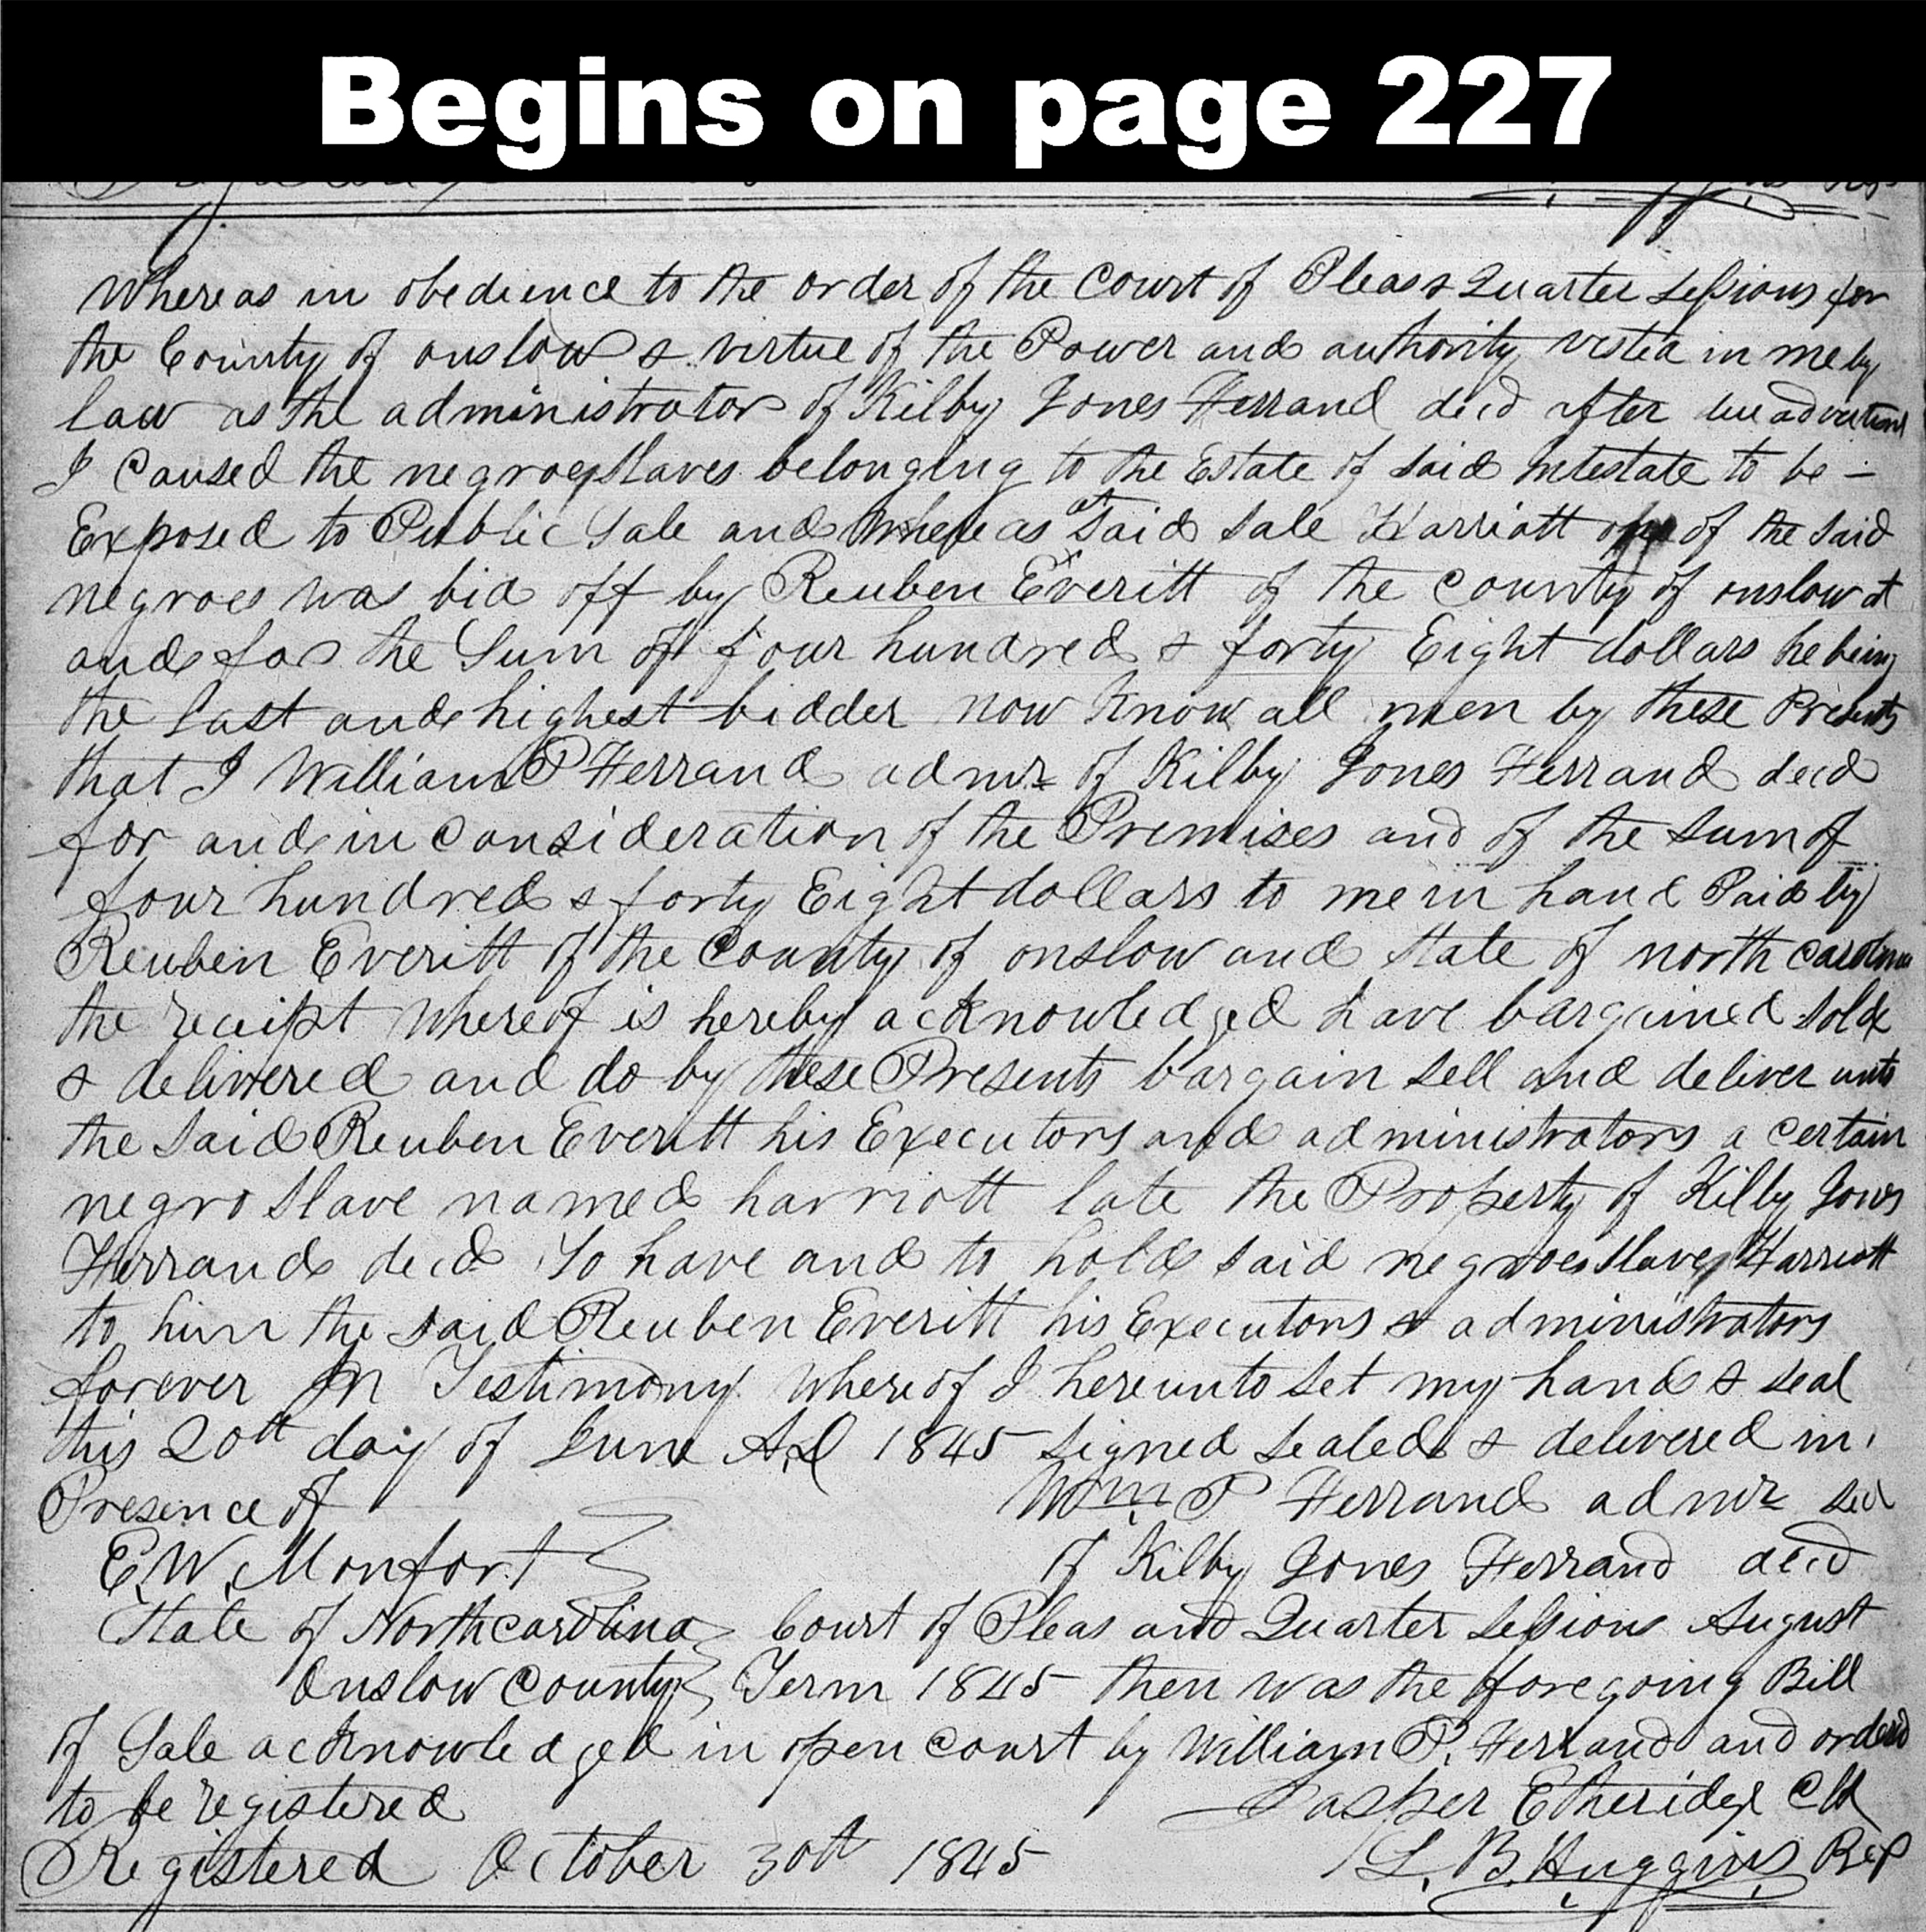 Begins on page 227
Whereas in obedience to the order of the Court of Pleas & Quarter Sessions for
the County of onslow & virtue of the Power and authority vested in me by
law as the administrator of Kilby Jones Ferrand decd after due
I Caused the negroes slaves belonging to the Estate of said intestate to be -
Exposed to Public Sale and Whereas at said sale Harriott one of the said
negroes was bid off by Reuben Everitt of the County of onslow at
and for the Sum of four hundred & forty Eight dollars he being
the last and highest bidder now Know all men by these Presents
that I William P Ferrand admr of Kilby Jones Ferrand decd
for and in Consideration of the Premises and of the sum of
four hundred & forty Eight dollars to me in hand Paid by
Reuben Everitt of the County of onslow and State of north carolina
the receipt Whereof is hereby acknowledged have bargained sold
& delivered and do by these Presents bargain sell and deliver unto
the said Reuben Everitt his Executors and administrators a certain
negro slave named harriott late the Property of Kilby Jones
Ferrand decd To have and to hold said negroes slaves Harriott
to him the said Reuben Everitt his Executors & administrators
forever In Testimony Whereof I hereunto set my hand & seal
this 20th day of June A.D 1845 Signed sealed & delivered in
Presence of Wm P Ferrand admr seal
E.W. Monfort of Kilby Jones Ferrand decd
State of North carolina Court of Pleas and Quarter Sessions August
Onslow County Term 1845 then was the foregoing Bill
of Sale acknowledged in open court by William P. Ferrand and ordered
to be registered Jasper Etheridge Clk
Registered October 30th 1845 L. B. Huggins Reg